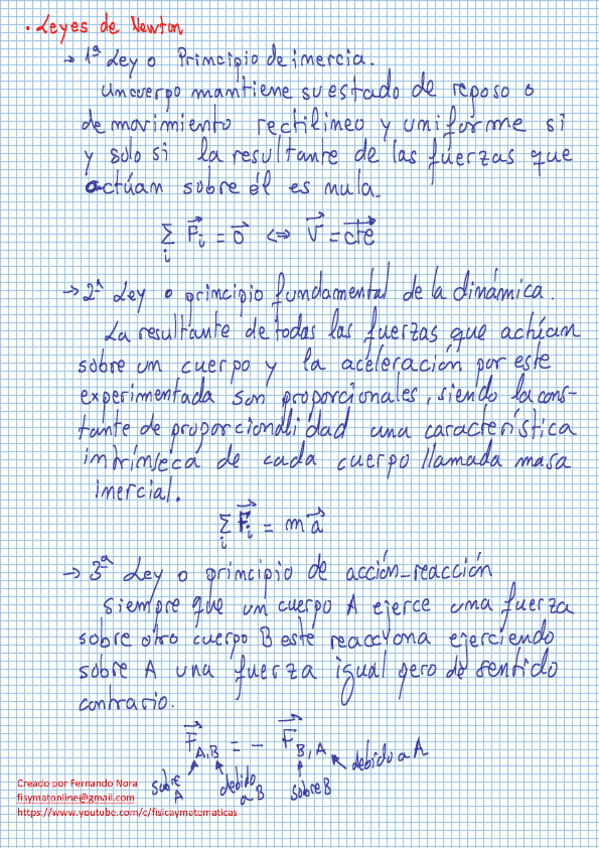 · Leyes de Newton
→ 1ª Ley o Principio de inercia.
Un cuerpo mantiene su estado de reposo o
de movimiento rectilineo y uniforme si
y solo si la resultante de las fuerzas que
actúan sobre él es nula.
∑ᵢ F⃗ᵢ = 0⃗ ⇔ V⃗ = cte⃗
→ 2ª Ley o principio fundamental de la dinámica.
La resultante de todas las fuerzas que actúan
sobre un cuerpo y la aceleración por este
experimentada son proporcionales, siendo la cons-
tante de proporcionalidad una característica
intrínseca de cada cuerpo llamada masa
inercial.
∑ᵢ F⃗ᵢ = m a⃗
→ 3ª Ley o principio de acción-reacción
Siempre que un cuerpo A ejerce una fuerza
sobre otro cuerpo B este reacciona ejerciendo
sobre A una fuerza igual pero de sentido
contrario.
F⃗_A,B = - F⃗_B,A
sobre A debido a B sobre B debido a A
Creado por Fernando Nora
fisymatonline@gmail.com
https://www.youtube.com/c/fisicaymatematicas